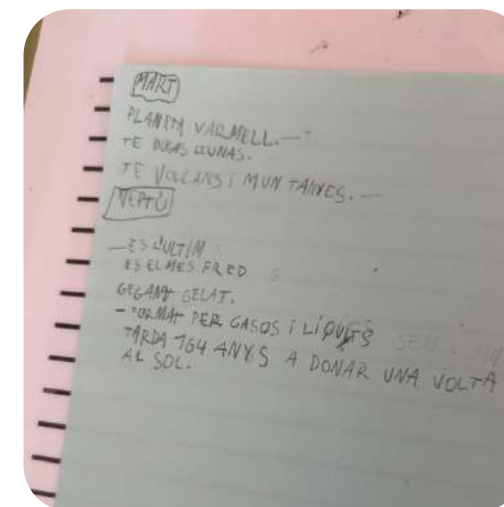 MART
PLANETA VARMELL.
TE DUAS LLUNAS.
TE VOLCANS I MUNTANYES.
NEPTÚ
— ES L'ULTIM
ES EL MES FRED
GEGANT GELAT.
- FORMAT PER GASOS I LÍQUITS
TARDA 164 ANYS A DONAR UNA VOLTA
AL SOL.